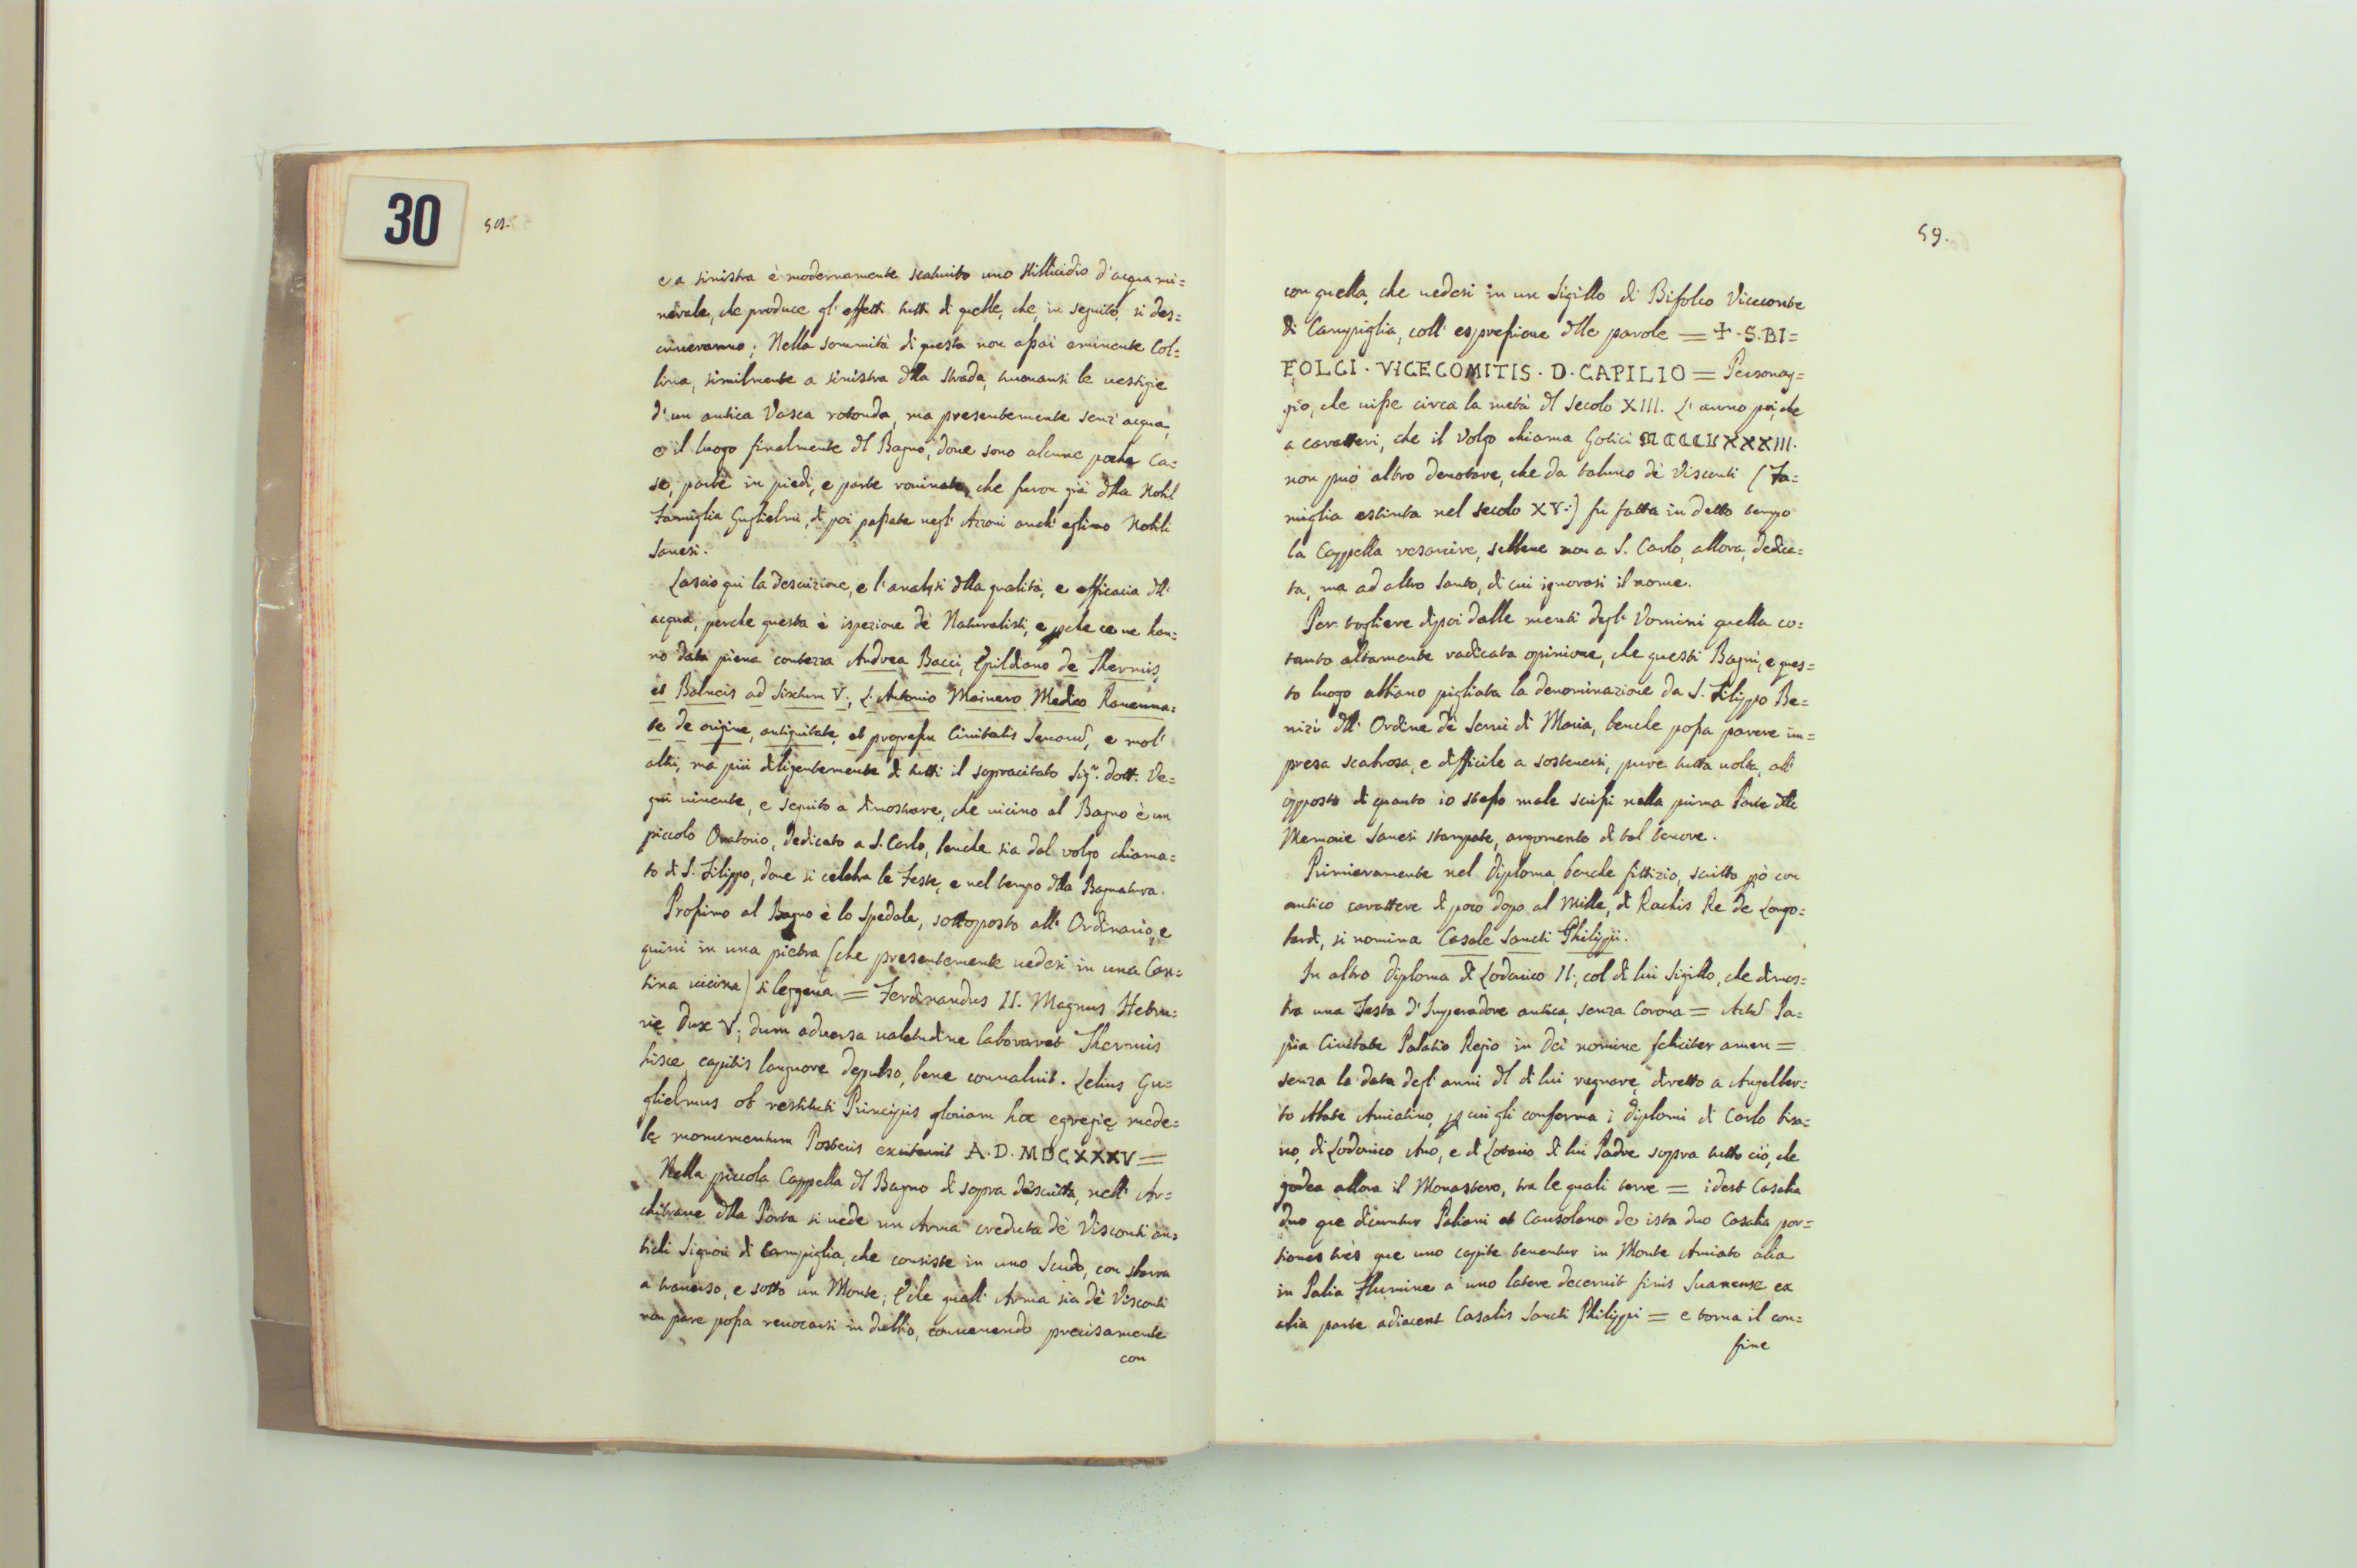 30
58.
e a sinistra è modernamente scaturito uno stillicidio d'acqua mi=
nerale, che produce gl'effetti tutti di quelle, che, in seguito, si des=
criveranno; Nella sommità di questa non assai eminente Col=
lina, similmente a sinistra dlla strada, truovansi le vestigie
d'un antica Vasca rotonda, ma presentemente senz'acqua,
e il luogo finalmente dl Bagno, dove sono alcune poche Ca=
se, parte in piedi, e parte rovinate, che furon già dlla Nobil
Famiglia Guglielmi, di poi passate negl'Azzoni anch'eglino Nobili
Sanesi.
Lascio qui la descrizione, e l'analisi dlla qualità, e efficacia dll'
acqua, perche questa è ispezione dè Naturalisti, e pche ce ne han=
no data piena contezza Andrea Bacci, Epildiano de Thermis,
et Balneis ad Sixtum V; L'Antonio Mainero Medico Ravenna=
te de origine, antiquitate, et progressu Civitatis Senarum, e molt'
altri, ma più diligentemente di tutti il sopracitato Sigr. Dott. Ve=
gni vivente, e seguito a dimostrare, che vicino al Bagno è un
piccolo Oratorio, dedicato a S. Carlo, benche sia dal volgo chiama=
to di S. Filippo, dove si celebra le Feste, e nel tempo dlla Bagnatura.
Prossimo al Bagno è lo Spedale, sottoposto all'Ordinario, e
quivi in una pietra (che presentemente vedesi in una Can=
tina vicina) si leggeva = Ferdinandus II. Magnus Hetru=
rię Dux V; dum adversa valetudine laboraret Thermis
hisce, capitis languore depulso, bene convaluit. Lelius Gu=
glielmus ob restituti Principis gloriam hoc egregię mede=
lę monumentum Posteris excitavit A. D. MDCXXXV =
Nella piccola Cappella dl Bagno di sopra descritta, nell'Ar=
chitrave dlla Porta si vede un Arma creduta dè Visconti an=
tichi Signori di Campiglia, che consiste in uno Scudo, con sbarra
a traverso, e sotto un Monte; E che quell'Arma sia dè Visconti
non pare possa revocarsi in dubbio, convenendo precisamente
con
59.
con quella, che vedesi in un Sigillo di Bifolco Viceconte
di Campiglia, coll'espressione dlle parole = + · S. BI=
FOLCI · VICECOMITIS · D · CAPILIO = Personag=
gio, che visse circa la metà dl secolo XIII. L'anno poi, che
a caratteri, che il Volgo chiama Gotici MCCCLXXXIII.
non può altro denotare, che da taluno dè Visconti (Fa=
miglia estinta nel secolo XV.) fù fatta in detto tempo
la Cappella resarcire, sebbene non a S. Carlo, allora, dedica=
ta, ma ad altro Santo, di cui ignorasi il nome.
Per togliere dipoi dalle menti degl'Uomini quella co=
tanto altamente radicata opinione, che questi Bagni, e ques=
to luogo abbiano pigliata la denominazione da S. Filippo Be=
nizi dll'Ordine dè Servi di Maria, benche possa parere im=
presa scabrosa, e difficile a sostenersi, pure tutta volta, all'
opposto di quanto io stesso male scrissi nella prima Parte dlle
Memorie Sanesi stampate, argomento di tal tenore.
Primieramente nel Diploma, benche fittizio, scritto pò con
antico carattere di poco dopo al Mille, di Rachis Re de Longo=
bardi, si nomina Casale Sancti Philippi.
In altro Diploma di Lodovico II; col di lui Sigillo, che dimos=
tra una Testa d'Imperadore antica, senza Corona = Actum Pa=
pia Civitate Palatio Regio in Dei nomine feliciter amen =
senza la data degl'anni dl di lui regnare, diretto a Angelber=
to Abate Amiatino, p cui gli conferma i Diplomi di Carlo bisa=
vo, di Lodovico Avo, e di Lotario di lui Padre sopra tutto ciò, che
godea allora il Monastero, tra le quali terre = idest Casalia
duo que dicuntur Paliani et Causolano de ista duo Casalia por=
tiones trés que uno capite tenentur in Monte Amiato alia
in Palia Flumine a uno latere decernit finis Suanense ex
alia parte adiacent Casalis Sancti Philippi = e torna il con=
fine